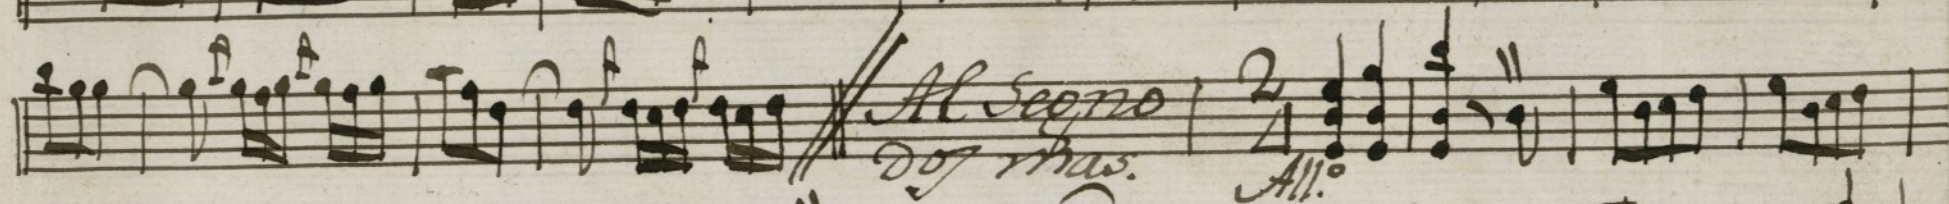 Al Segno
dos mas.
2
4
All.º